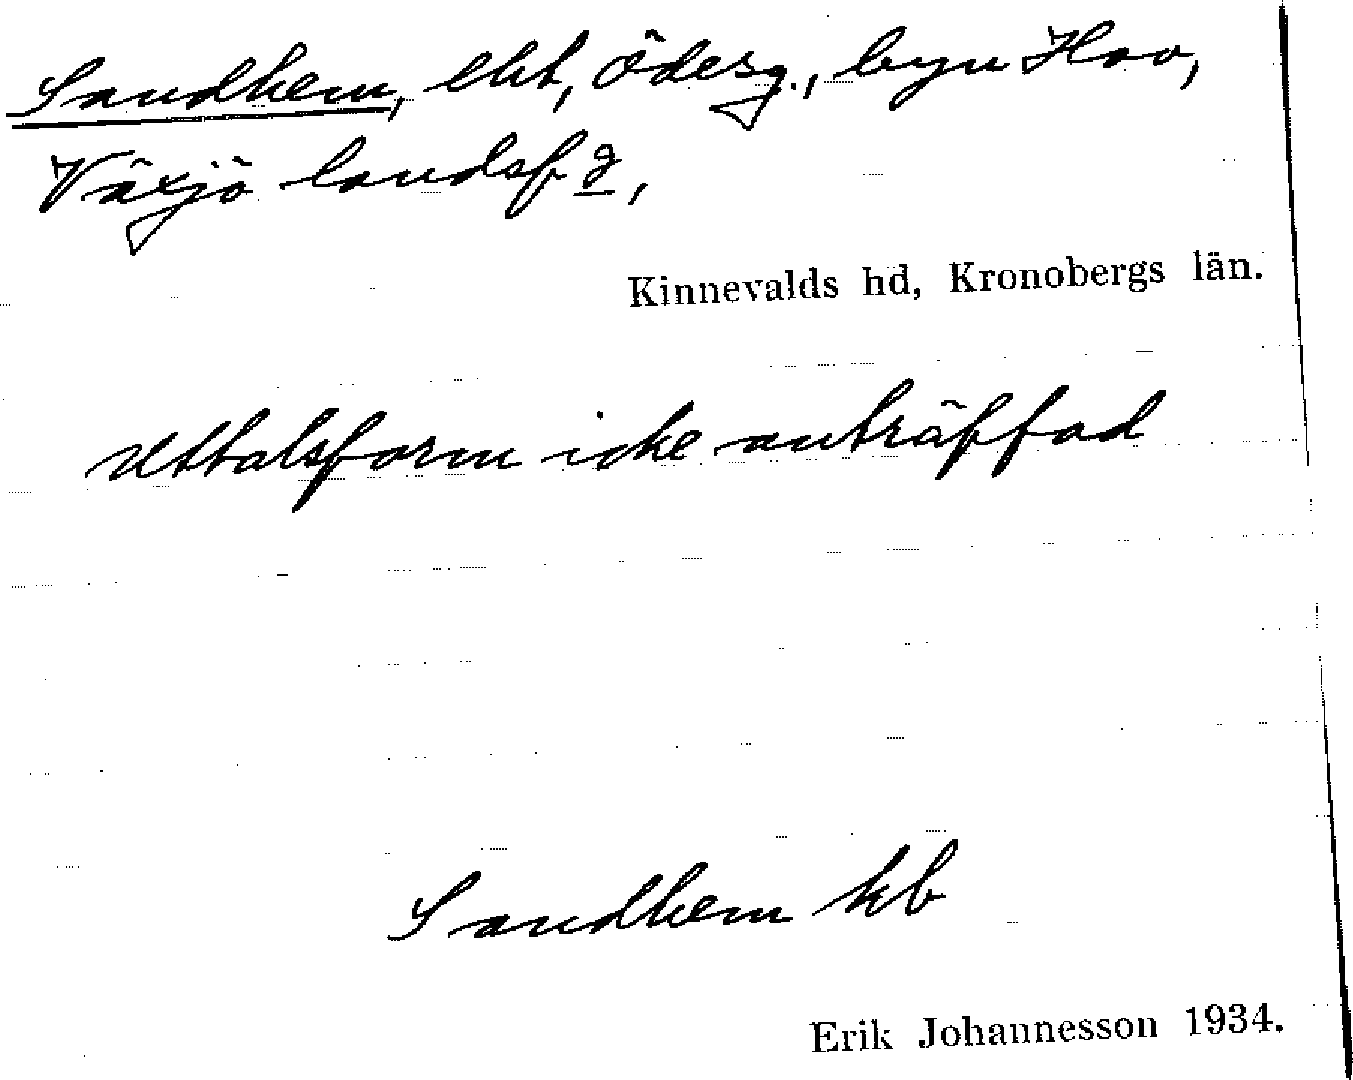 Sandhem, lht, Ödesg., byn Hov,
Växjö landsf g,
Kinnevalds hd, Kronobergs län.
Uttalsform icke anträffad
Sandhem kb
Erik Johannesson 1934.